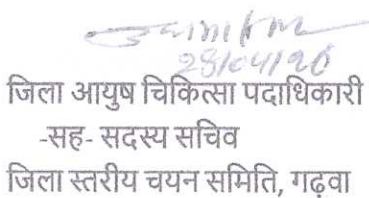 28/04/26
जिला आयुष चिकित्सा पदाधिकारी
-सह- सदस्य सचिव
जिला स्तरीय चयन समिति, गढ़वा